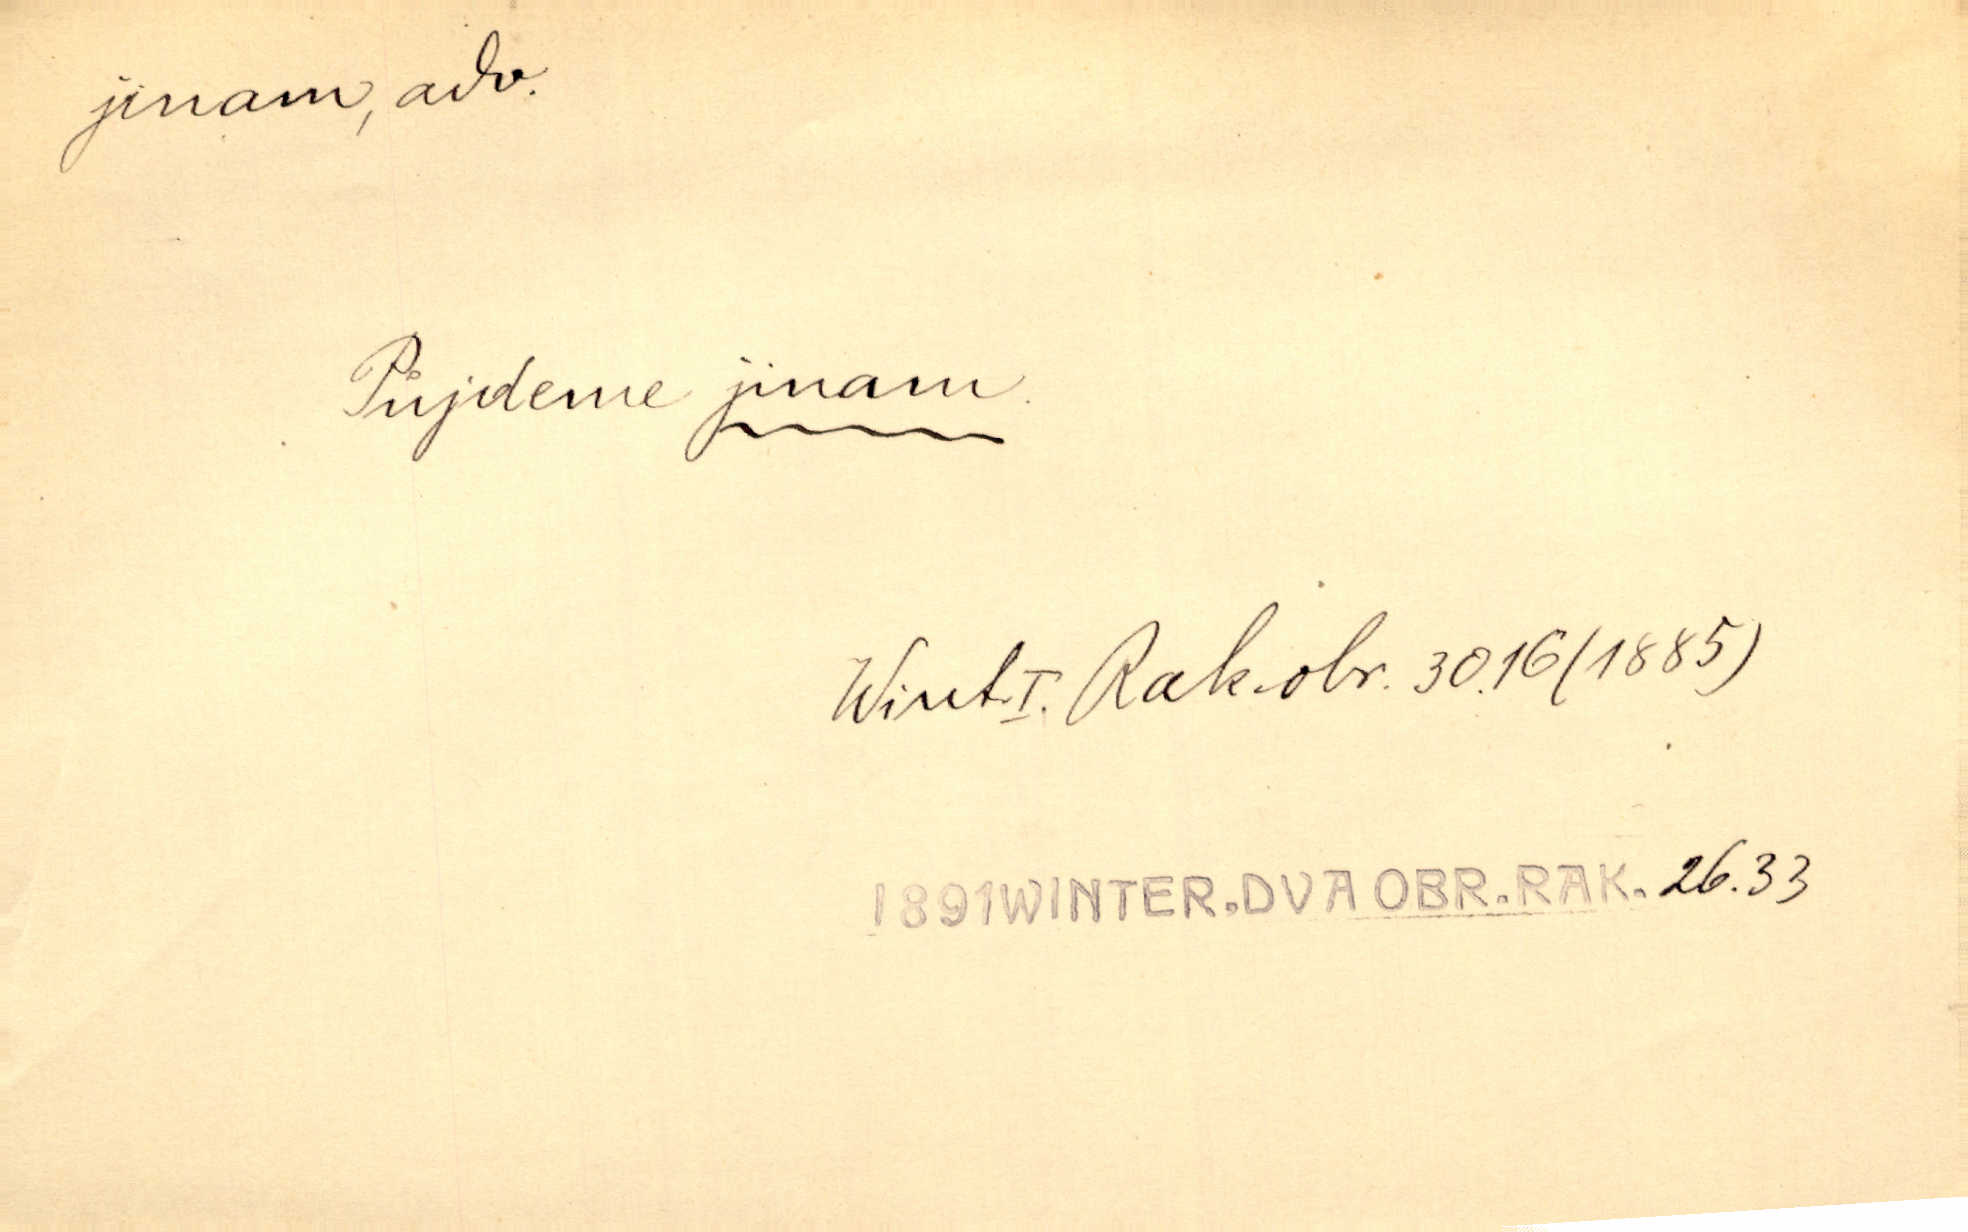 jinam, adv.
Půjdeme jinam.
Wint. I. Rak. obr. 30.16 (1885)
1891 WINTER. DVA OBR. RAK. 26.33